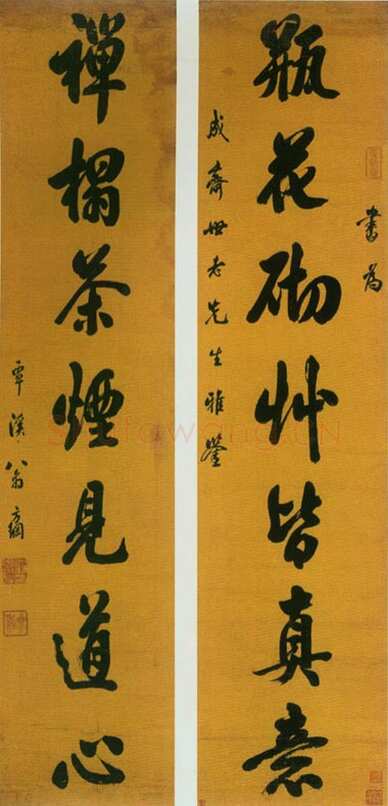 書為
瓶花砌艸皆真意
成齋世老先生雅鑒
禪榻茶煙見道心
覃溪翁方綱